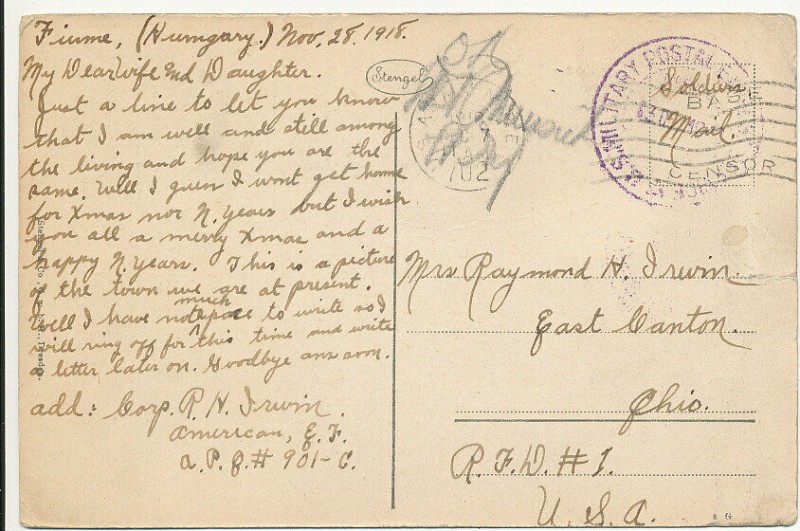 Fiume, (Hungary.) Nov. 28. 1918.
My Dear Wife End Daughter.
Just a line to let you know
that I am well and still among
the living and hope you are the
same. Well I guess I wont get home
for Xmas nor N. Years but I wish
you all a merry Xmas and a
happy N. Years. This is a picture
of the town we are at present.
Well I have not much space to write so I
will ring off for this time and write
a letter later on. Goodbye ans soon.
add: Corp. R. H. Irwin.
American, E. F.
A. P. O. # 901-C.
Stengel
OK
U.S. MILITARY POSTAL
Soldiers
Mail.
BASE
CENSOR
702
Mrs Raymond H. Irwin.
East Canton.
Ohio.
R. F. D. # 1.
U. S. A.
Dresden.